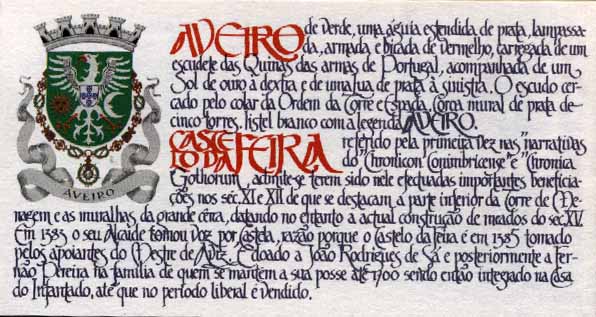 AVEIRO
AVEIRO de verde, uma águia estendida de prata, lampassa-
da, armada e bicada de vermelho, carregada de um
escudete das Quinas das armas de Portugal, acompanhada de um
Sol de ouro à dextra e de uma lua de prata à sinistra. O escudo cer-
cado pelo colar da Ordem da Torre e Espada. Coroa mural de prata de
cinco torres, listel branco com a legenda AVEIRO.
CASTELO DA FEIRA referido pela primeira vez nas "narrativas
do "Chronicon Conimbricense" e "Chronica
Gothorum", admite-se terem sido nele efectuadas importantes beneficia-
ções nos séc. XI e XII de que se destacam, a parte inferior da Torre de Me-
nagem e as muralhas da grande cerca, datando no entanto a actual construção de meados do séc. XV.
Em 1383 o seu Alcaide tomou voz por Castela, razão porque o Castelo da Feira é em 1385 tomado
pelos apoiantes do Mestre de Aviz. É doado a João Rodrigues de Sá e posteriormente a Fer-
não Pereira na família de quem se mantém a sua posse até 1700 sendo então integrado na Casa
do Infantado, até que no período liberal é vendido.